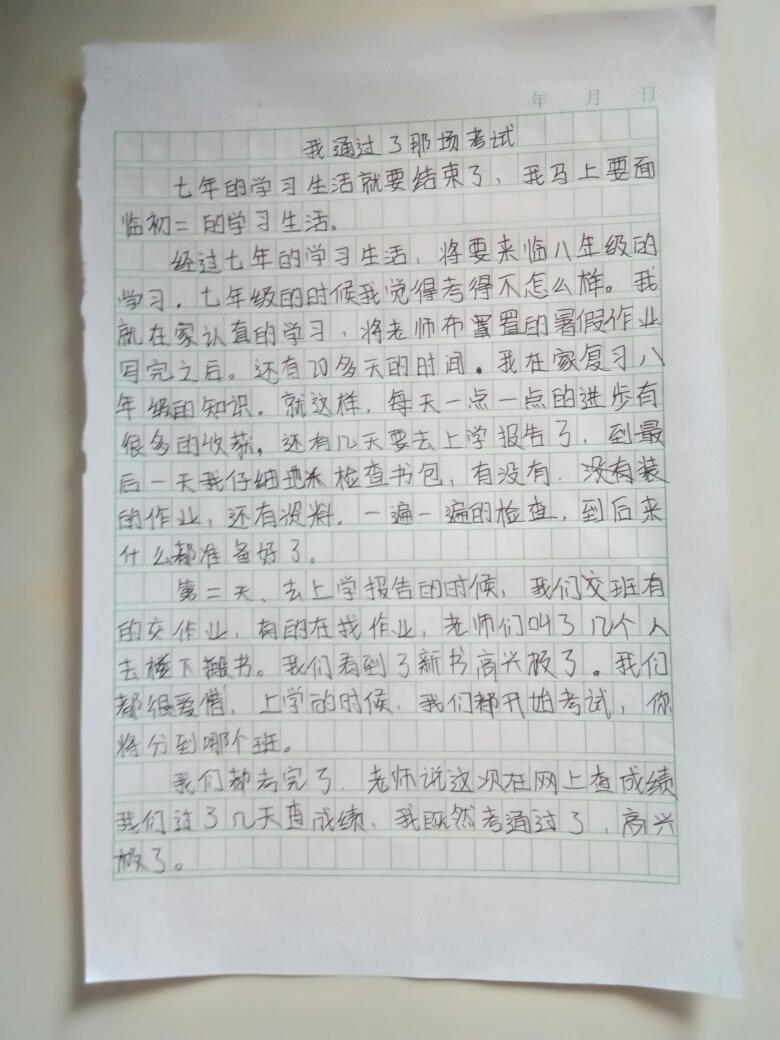 年 月 日
我通过了那场考试
七年的学习生活就要结束了、我马上要面
临初二的学习生活。
经过七年的学习生活，将要来临八年级的
学习．七年级的时候我觉得考得不怎么样。我
就在家认真的学习、将老师布置置的暑假作业
写完之后。还有20多天的时间．我在家复习八
年级的知识．就这样，每天一点一点的进步有
很多的收获，还有几天要去上学报告了，到最
后一天我仔细地检查书包，有没有．没有装
的作业，还有资料．一遍一遍的检查，到后来
什么都准备好了。
第二天、去上学报告的时候，我们交班有
的交作业，有的在找作业，老师们叫了几个人
去楼下搬书。我们看到了新书高兴极了。我们
都很爱惜．上学的时候．我们都开始考试，你
将分到哪个班。
我们都考完了．老师说这次在网上查成绩
我们过了几天查成绩、我既然考通过了，高兴
极了。